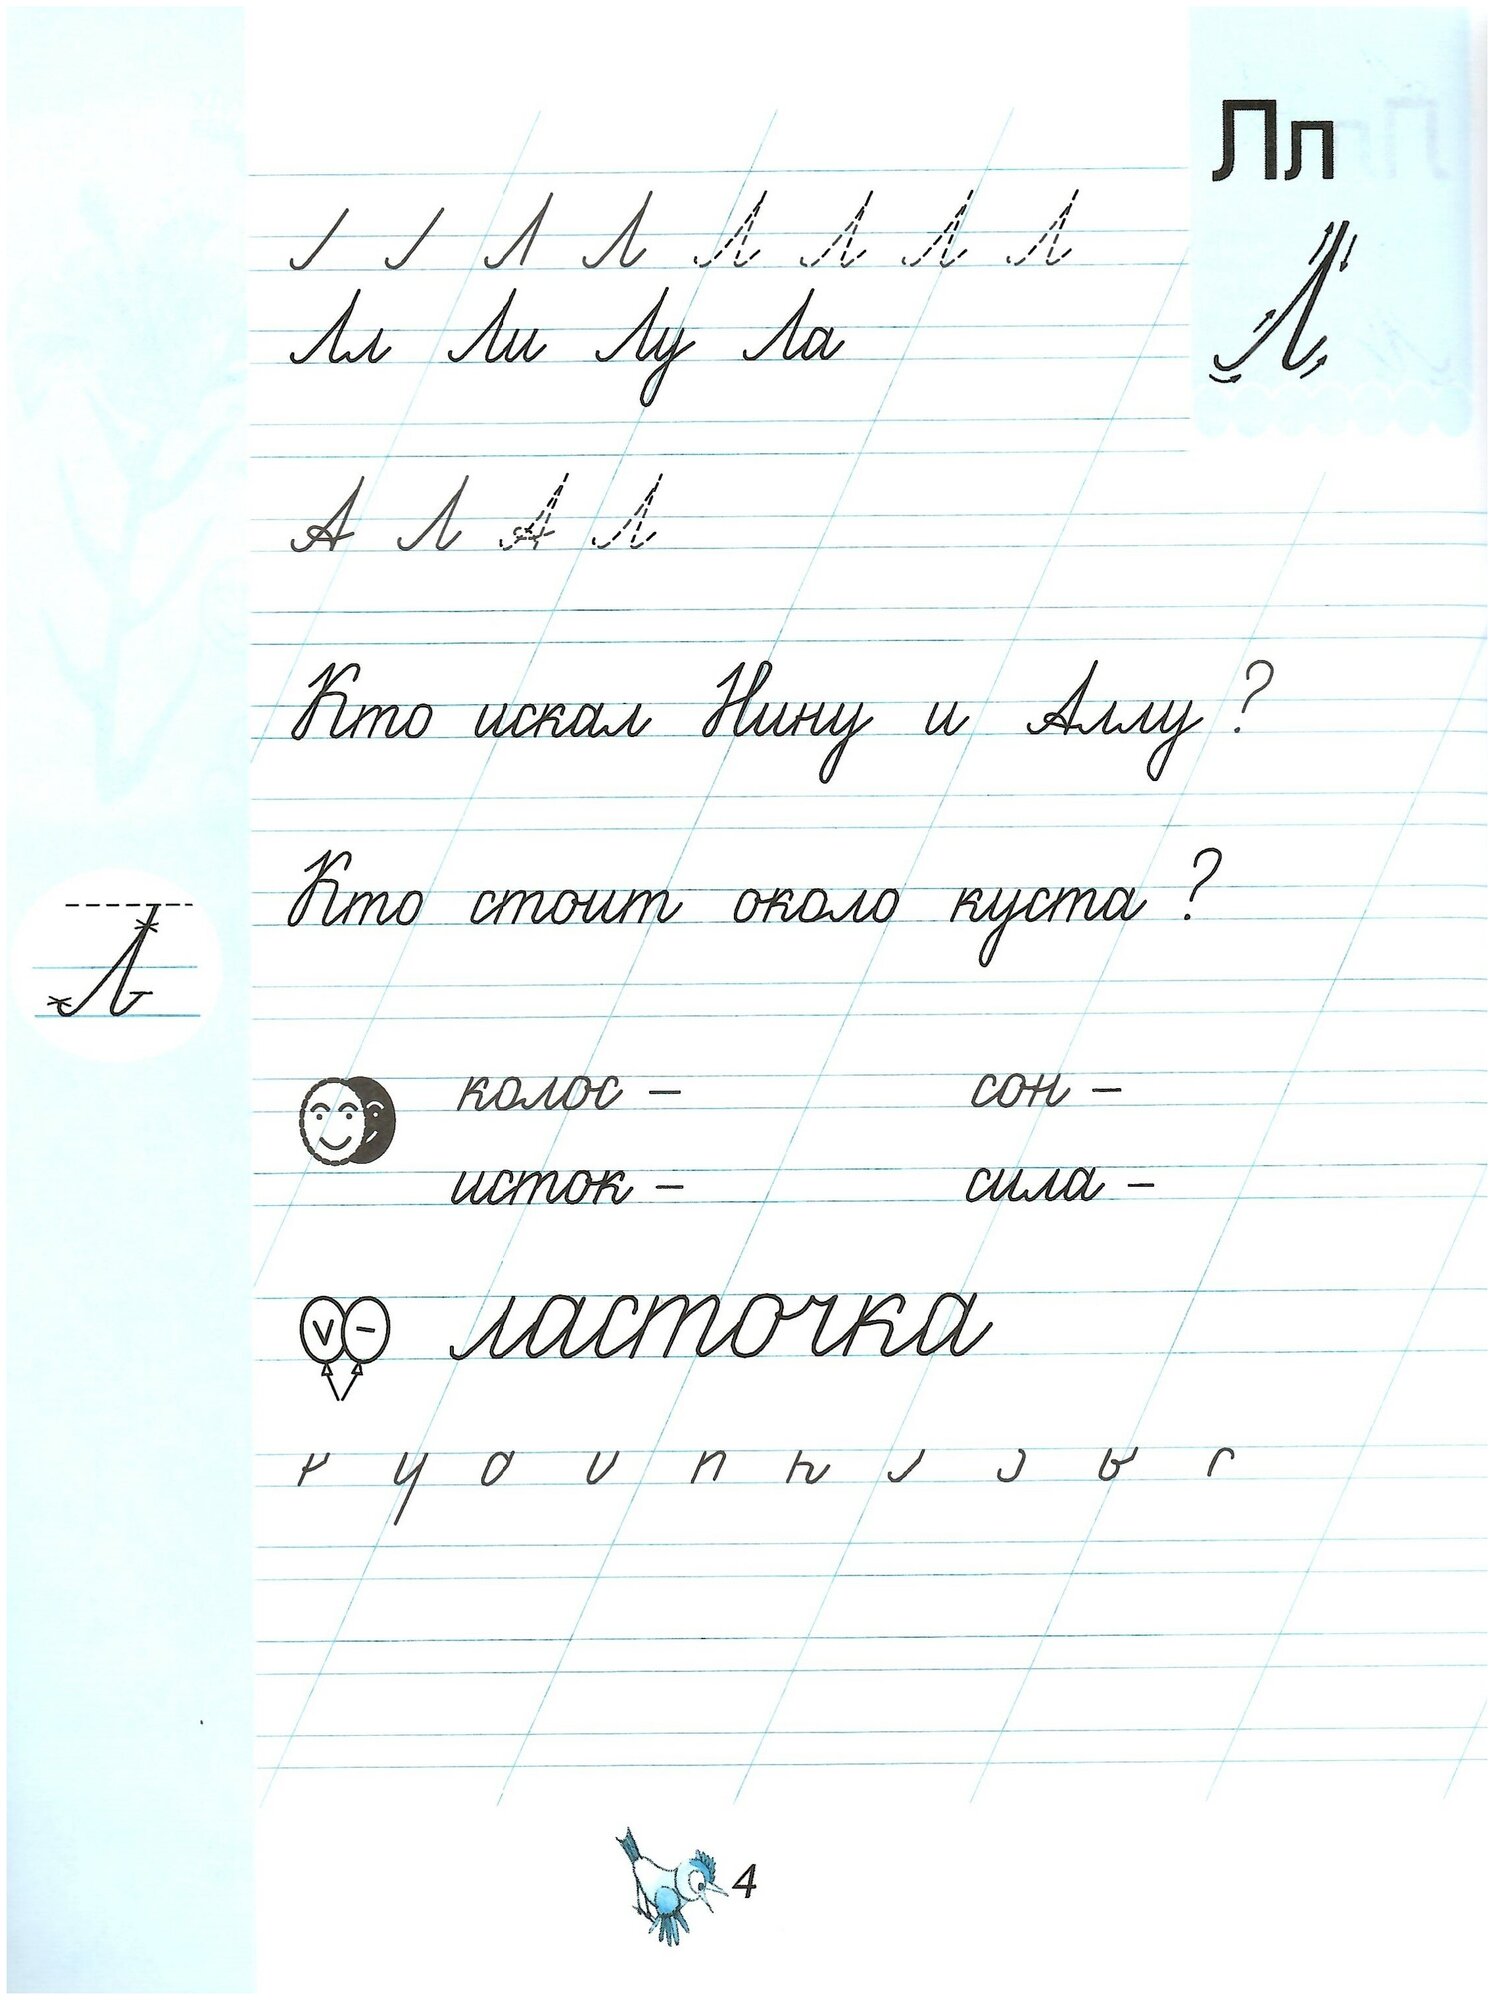 Лл
Л Л Л Л Л Л
Лл Ли Лу Ла
Л
А Л А Л
Кто искал Нину и Аллу ?
Кто стоит около куста ?
Л
колос – сон –
исток – сила –
ласточка
4